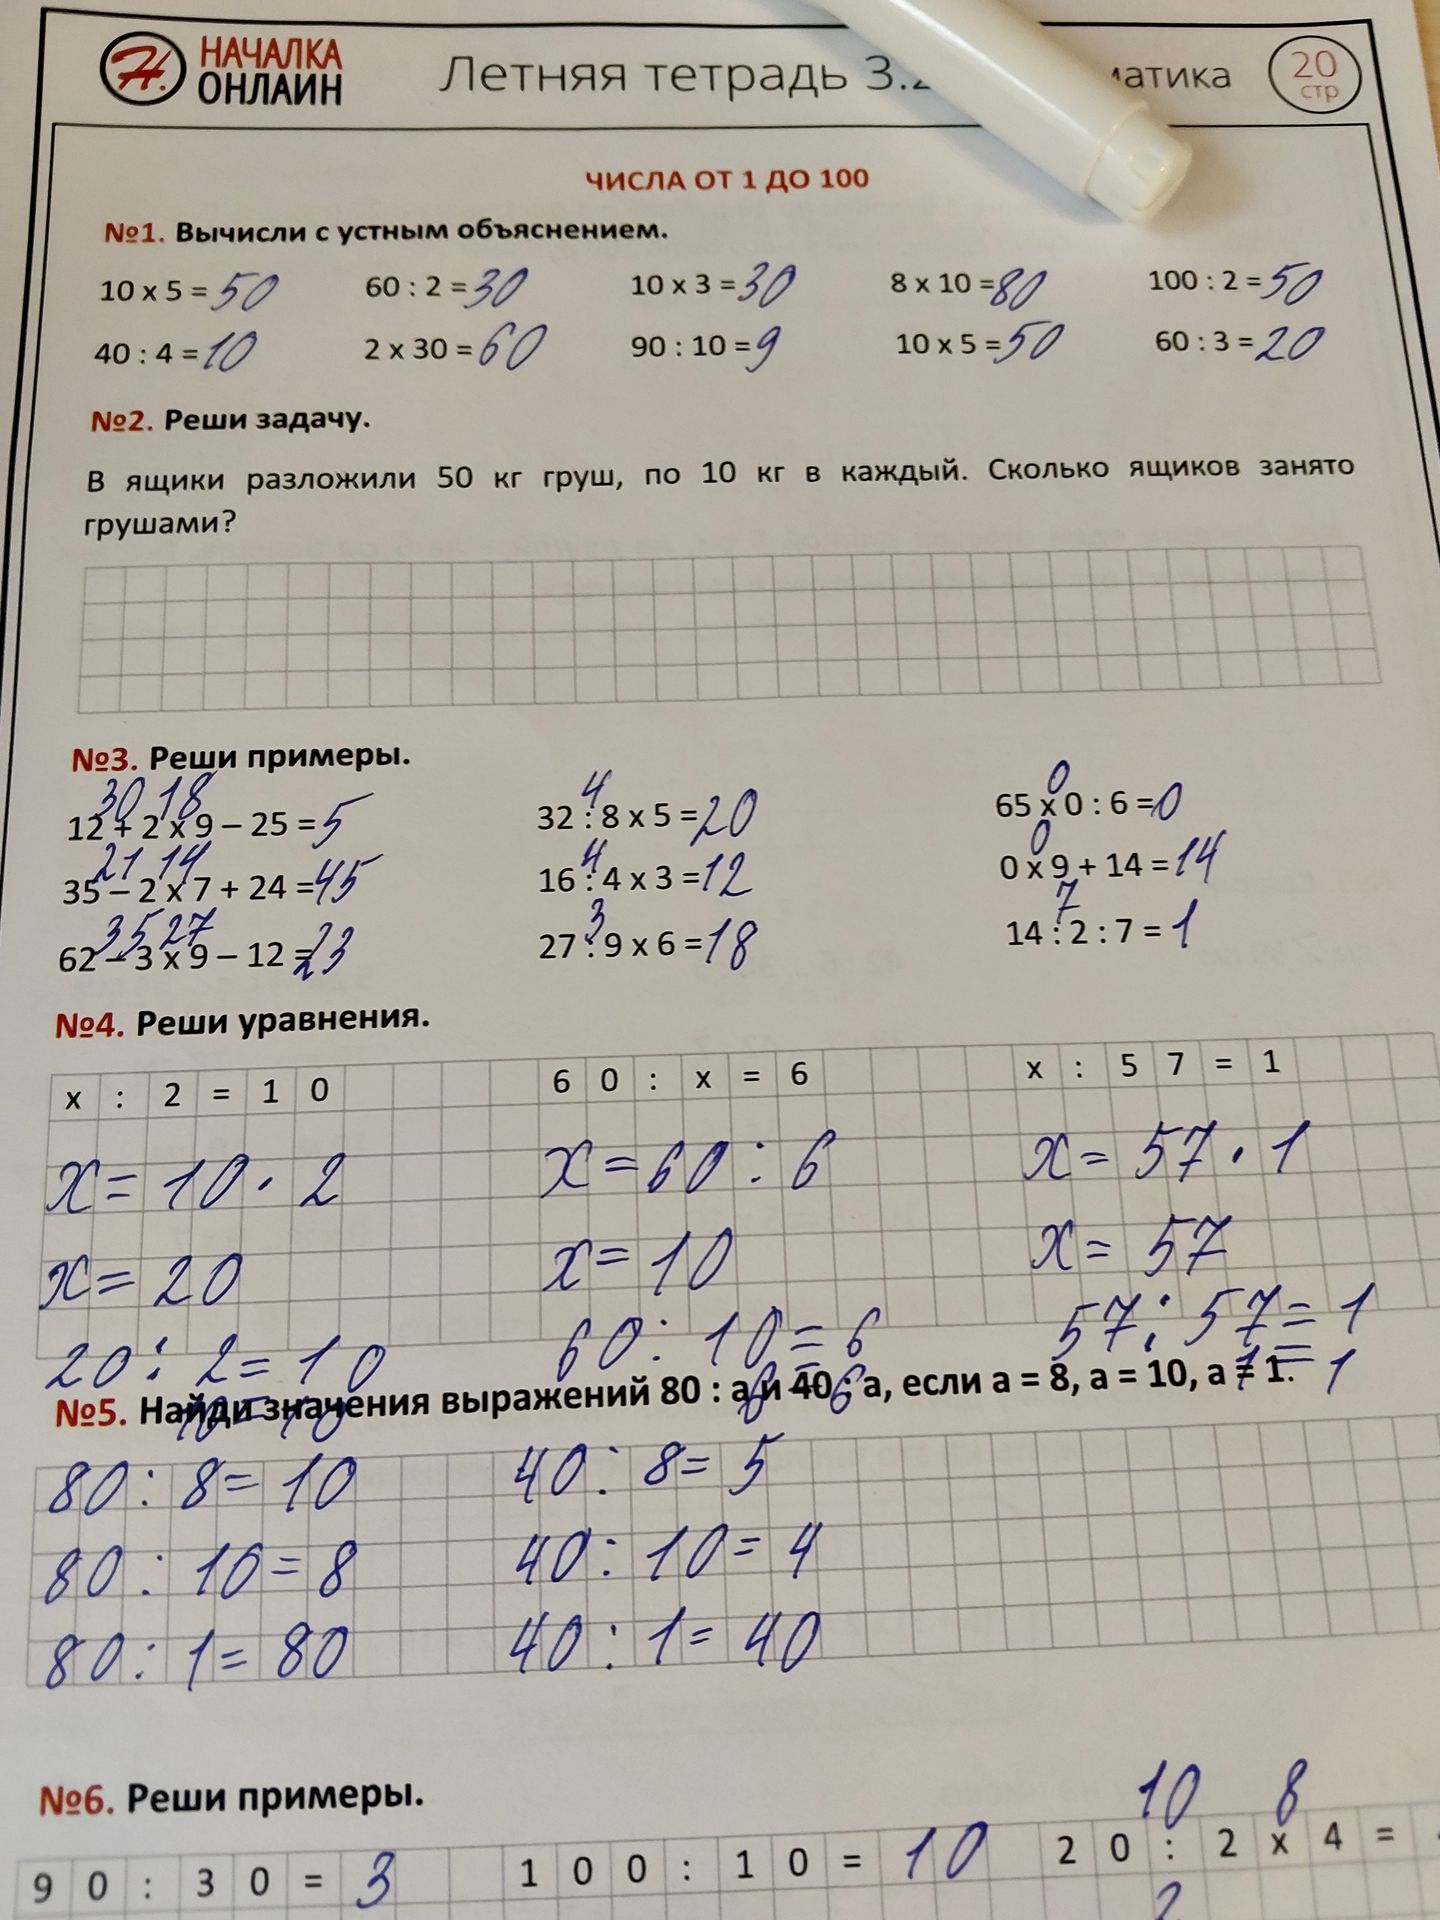 НАЧАЛКА ОНЛАЙН
Летняя тетрадь 3.
20 стр
ЧИСЛА ОТ 1 ДО 100
№1. Вычисли с устным объяснением.
10 x 5 = 50 60 : 2 = 30 10 x 3 = 30 8 x 10 = 80 100 : 2 = 50
40 : 4 = 10 2 x 30 = 60 90 : 10 = 9 10 x 5 = 50 60 : 3 = 20
№2. Реши задачу.
В ящики разложили 50 кг груш, по 10 кг в каждый. Сколько ящиков занято
грушами?
№3. Реши примеры.
30 18 4 0
12 + 2 x 9 – 25 = 5 32 : 8 x 5 = 20 65 x 0 : 6 = 0
21 14 4 0
35 – 2 x 7 + 24 = 45 16 : 4 x 3 = 12 0 x 9 + 14 = 14
35 27 3 7
62 – 3 x 9 – 12 = 23 27 : 9 x 6 = 18 14 : 2 : 7 = 1
№4. Реши уравнения.
x : 2 = 10 60 : x = 6 x : 57 = 1
x = 10 · 2 x = 60 : 6 x = 57 · 1
x = 20 x = 10 x = 57
20 : 2 = 10 60 : 10 = 6 57 : 57 = 1
10 = 10 6 = 6 1 = 1
№5. Найди значения выражений 80 : а и 40 : а, если а = 8, а = 10, а = 1.
80 : 8 = 10 40 : 8 = 5
80 : 10 = 8 40 : 10 = 4
80 : 1 = 80 40 : 1 = 40
№6. Реши примеры.
10 8
90 : 30 = 3 100 : 10 = 10 20 : 2 x 4 =
2